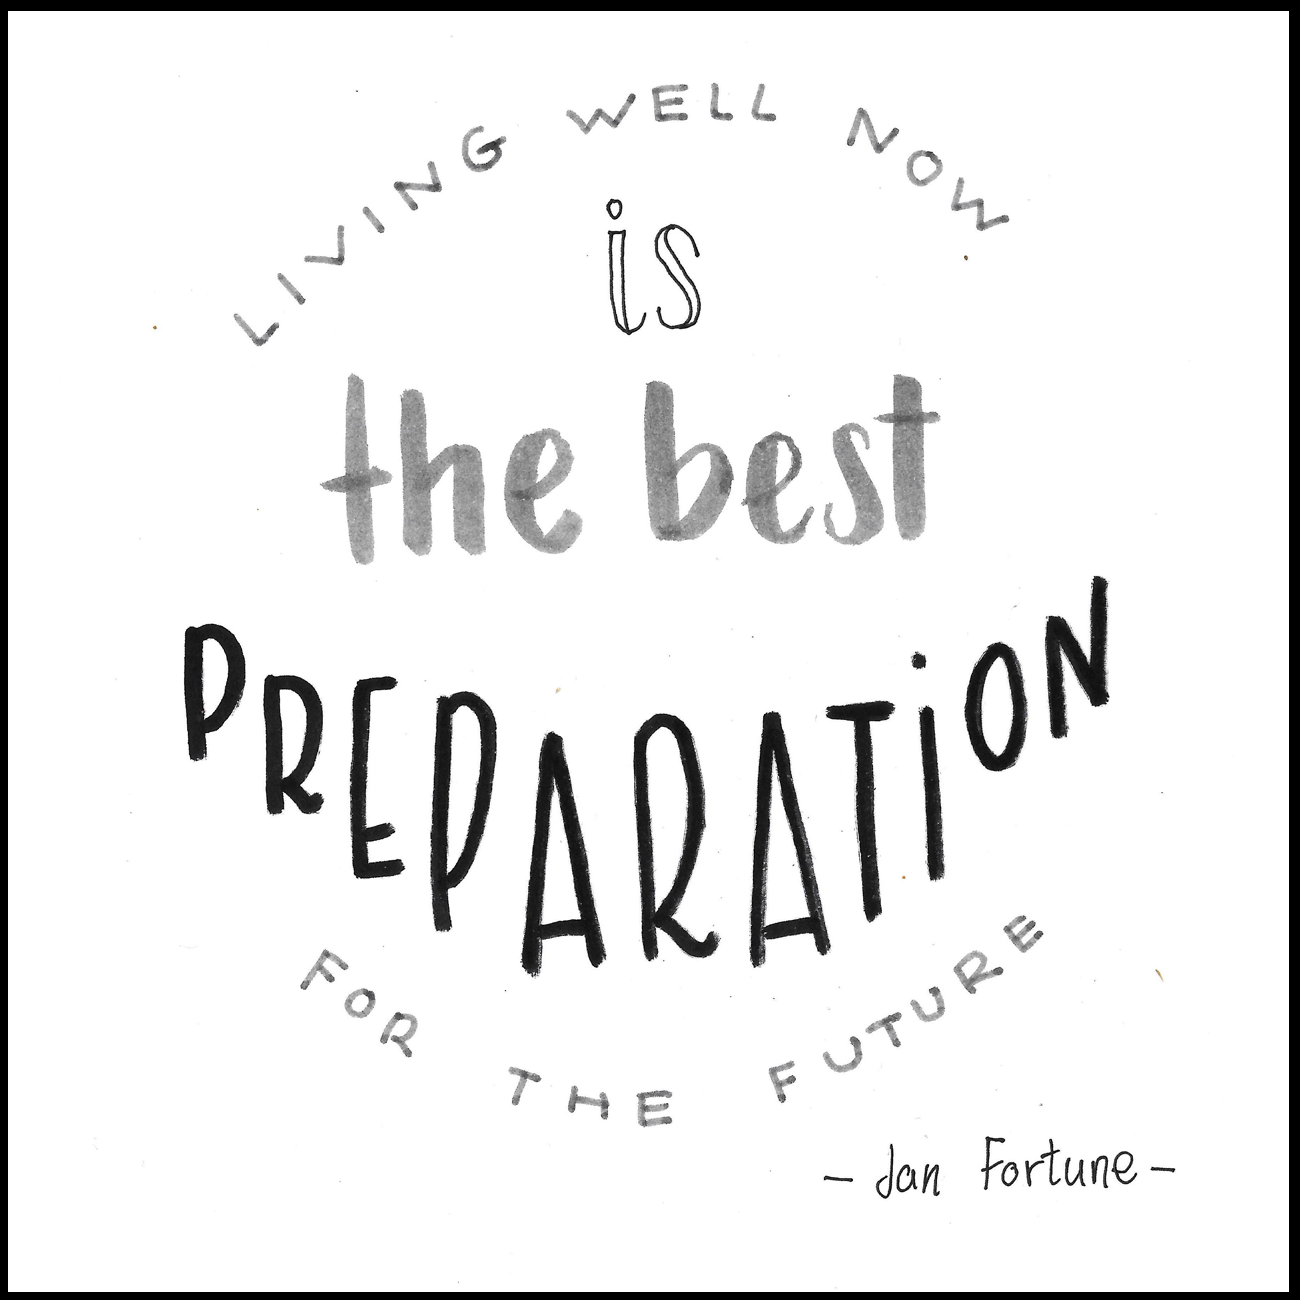 LIVING WELL NOW
is
the best
PREPARATiON
FOR THE FUTURE
- Jan Fortune -